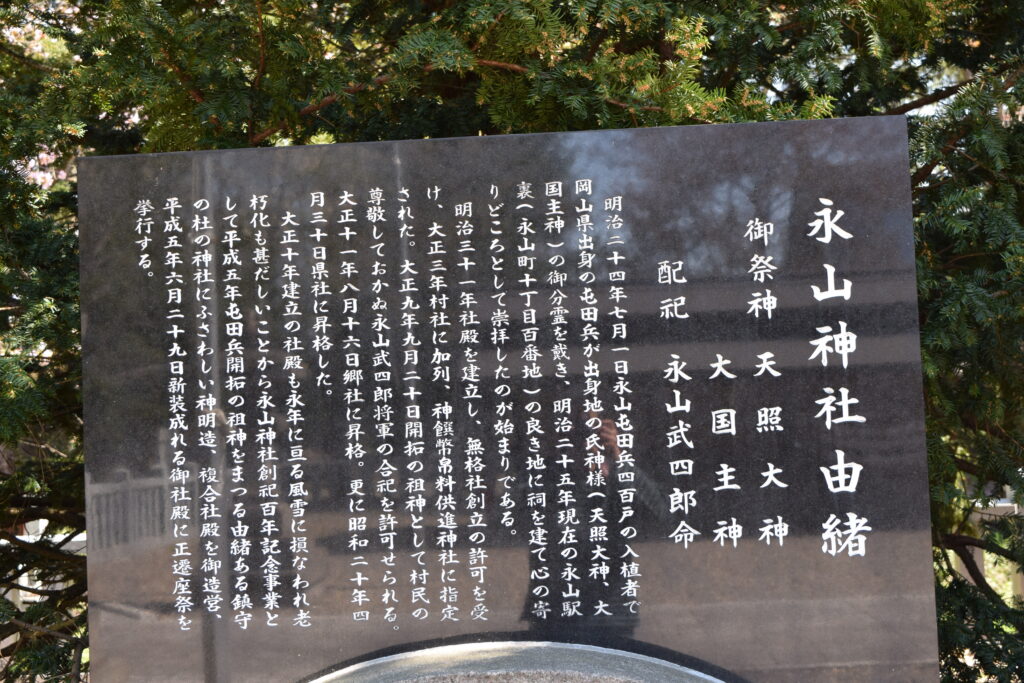 永山神社由緒
御祭神 天照大神
大国主神
配祀 永山武四郎命
明治二十四年七月一日永山屯田兵四百戸の入植者で
岡山県出身の屯田兵が出身地の氏神様(天照大神、大
国主神)の御分霊を戴き、明治二十五年現在の永山駅
裏(永山町十丁目百番地)の良き地に祠を建て心の寄
りどころとして崇拝したのが始まりである。
明治三十一年社殿を建立し、無格社創立の許可を受
け、大正三年村社に加列、神饌幣帛料供進神社に指定
された。大正九年九月二十日開拓の祖神として村民の
尊敬しておかぬ永山武四郎将軍の合祀を許可せられる。
大正十一年八月十六日郷社に昇格。更に昭和二十年四
月三十日県社に昇格した。
大正十年建立の社殿も永年に亘る風雪に損なわれ老
朽化も甚だしいことから永山神社創祀百年記念事業と
して平成五年屯田兵開拓の祖神をまつる由緒ある鎮守
の杜の神社にふさわしい神明造、複合社殿を御造営、
平成五年六月二十九日新装成れる御社殿に正遷座祭を
挙行する。